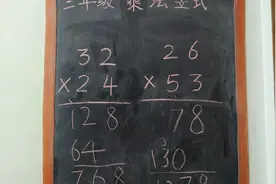 三年级 乘法竖式
32 26
×24 ×53
128 78
64 130
768 1378